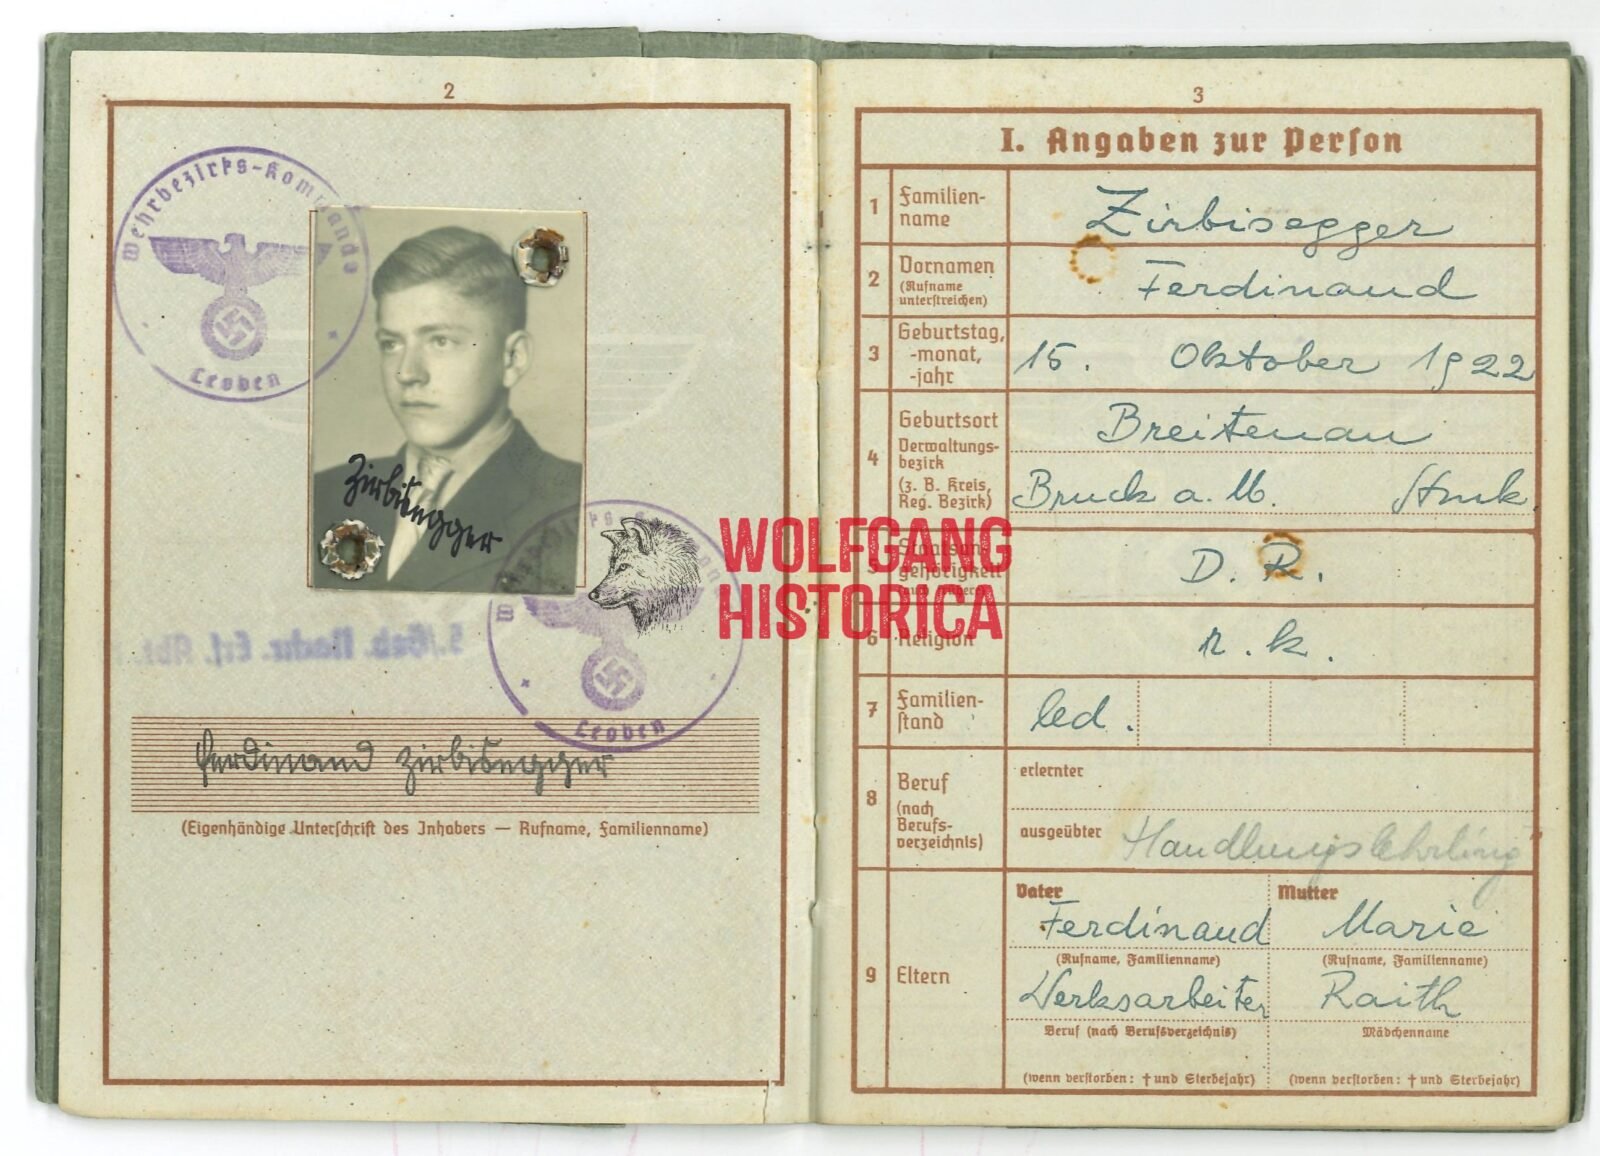 2
Wehrbezirks-Kommando
Leoben
Zirbisegger
Wehrbezirks-Kommando
Leoben
Ferdinand Zirbisegger
(Eigenhändige Unterschrift des Inhabers — Rufname, Familienname)
WOLFGANG
HISTORICA
3
I. Angaben zur Person
1 Familien-
name
Zirbisegger
2 Vornamen
(Rufname
unterstreichen)
Ferdinand
3 Geburtstag,
-monat,
-jahr
15. Oktober 1922
4 Geburtsort
Verwaltungs-
bezirk
(z. B. Kreis,
Reg. Bezirk)
Breitenau
Bruck a. M. Stmk.
5 Staatsan-
gehörigkeit
D. R.
6 Religion
r. k.
7 Familien-
stand
led.
8 Beruf
(nach
Berufs-
verzeichnis)
erlernter
ausgeübter Handlungslehrling
9 Eltern
Vater
Ferdinand
(Rufname, Familienname)
Werksarbeiter
Beruf (nach Berufsverzeichnis)
(wenn verstorben: † und Sterbejahr)
Mutter
Marie
(Rufname, Familienname)
Raith
Mädchenname
(wenn verstorben: † und Sterbejahr)